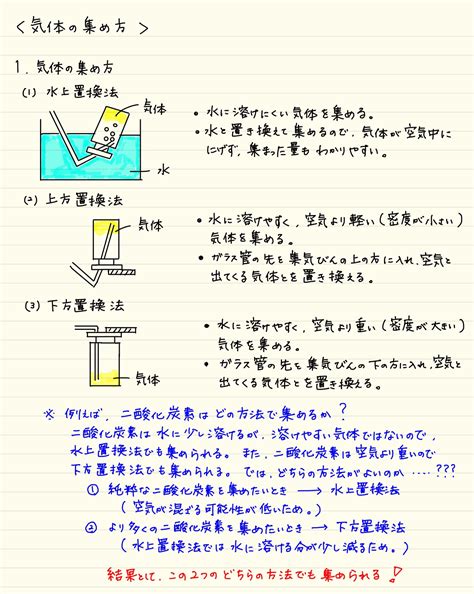 ＜気体の集め方＞
1. 気体の集め方
(1) 水上置換法
気体
水
• 水に溶けにくい気体を集める。
• 水と置き換えて集めるので、気体が空気中に
にげず、集まった量もわかりやすい。
(2) 上方置換法
気体
• 水に溶けやすく、空気より軽い(密度が小さい)
気体を集める。
• ガラス管の先を集気びんの上の方に入れ、空気と
出てくる気体とを置き換える。
(3) 下方置換法
気体
• 水に溶けやすく、空気より重い(密度が大きい)
気体を集める。
• ガラス管の先を集気びんの下の方に入れ、空気と
出てくる気体とを置き換える。
※ 例えば、二酸化炭素はどの方法で集めるか?
二酸化炭素は水に少し溶けるが、溶けやすい気体ではないので、
水上置換法でも集められる。また、二酸化炭素は空気より重いので
下方置換法でも集められる。では、どちらの方法がよいのか ····???
① 純粋な二酸化炭素を集めたいとき → 水上置換法
(空気が混ざる可能性が低いため。)
② より多くの二酸化炭素を集めたいとき → 下方置換法
(水上置換法では水に溶ける分が少し減るため。)
結果として、この2つのどちらの方法でも集められる!